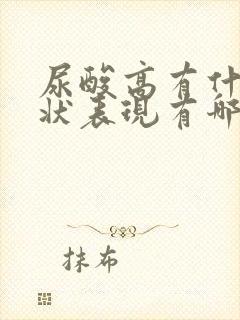 尿酸高有什
状表现有哪
抹布